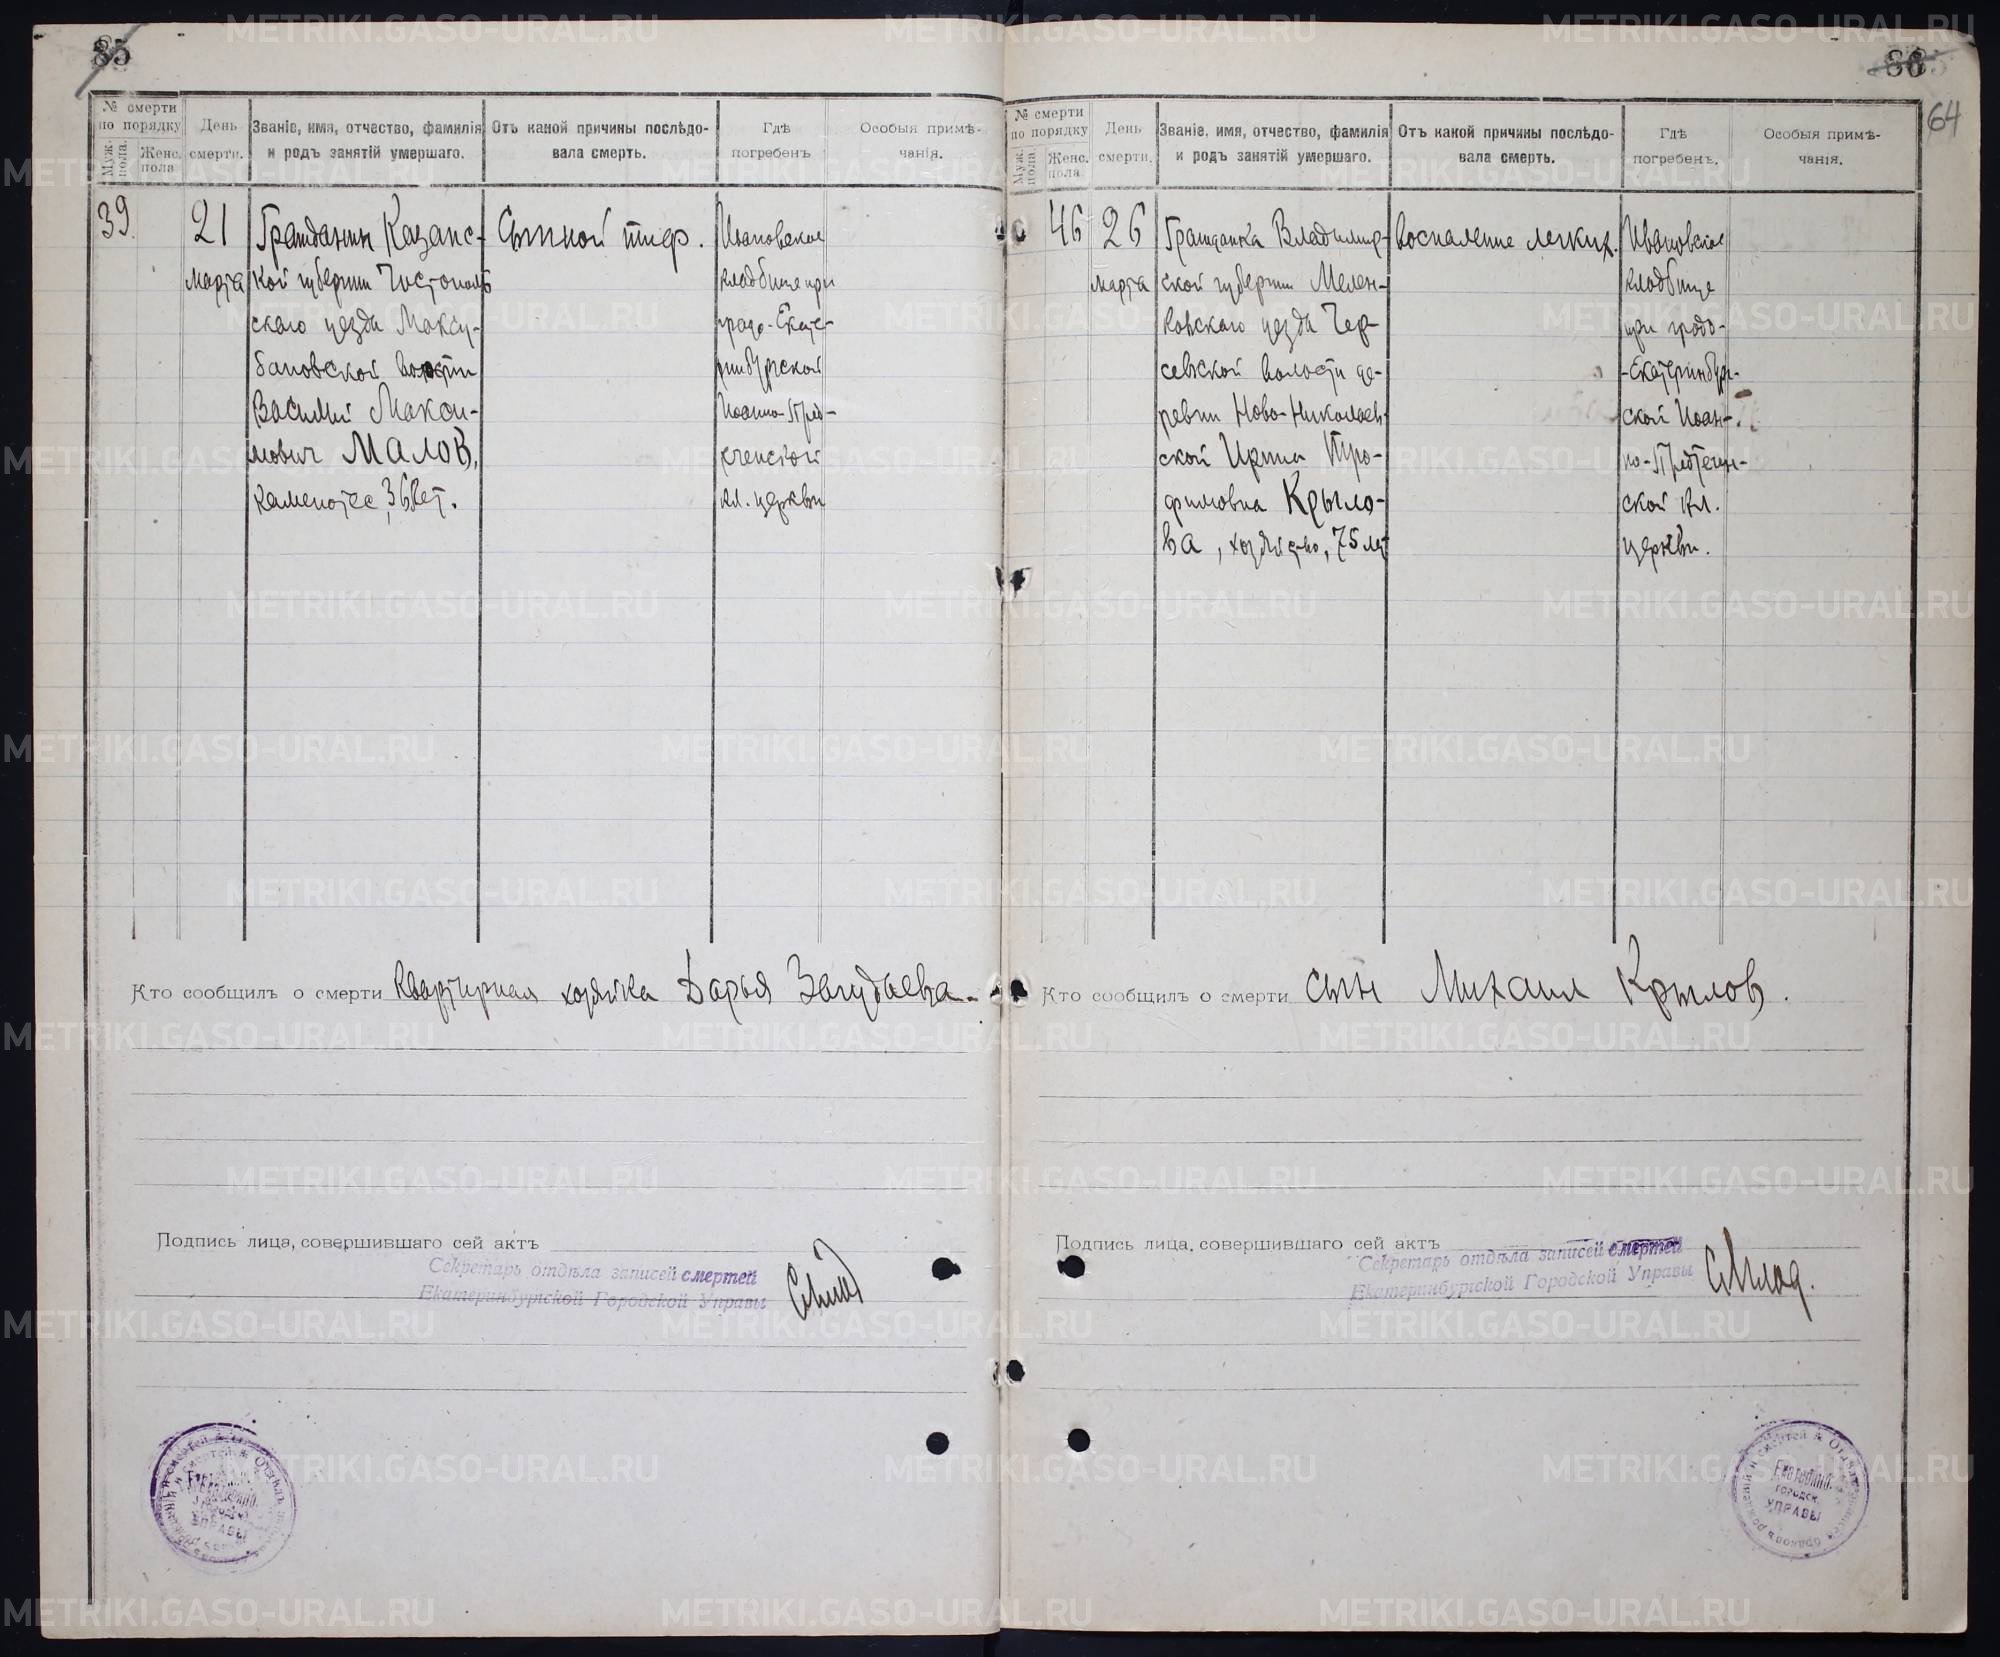 85
№ смерти по порядку
Муж. пола.
Женс. пола
День смерти.
Званіе, имя, отчество, фамилія и родъ занятій умершаго.
Отъ какой причины послѣдовала смерть.
Гдѣ погребенъ
Особыя примѣчанія.
39
21
марта
Гражданин Казанс-
кой губернии Чистополь
скаго уезда Максу-
бановской волости
Василий Макси-
мович Малов,
каменотес, 36 лет.
Сыпной тиф.
Ивановское
кладбище при
градо-Екате-
ринбургской
Иоанно-Пред-
теченской
кл. церкви
Кто сообщилъ о смерти квартирная хозяйка Дарья
Подпись лица, совершившаго сей актъ
Секретарь отдѣла записей смертей
Екатеринбургской Городской Управы
86
64
№ смерти по порядку
Муж. пола.
Женс. пола
День смерти.
Званіе, имя, отчество, фамилія и родъ занятій умершаго.
Отъ какой причины послѣдовала смерть.
Гдѣ погребенъ.
Особыя примѣчанія.
46
26
марта
Гражданка Владимир-
ской губернии Мелен-
ковскаго уезда Чер-
севской волости де-
ревни Ново-Николаев-
ской Ирина Тро-
фимовна Крыло-
ва, хозяйство, 75 лет
Воспаление легких.
Ивановское
кладбище
при градо-
-Екатеринбург-
ской Иоан-
но-Предтечен-
ской кл.
церкви.
Кто сообщилъ о смерти сын Михаил Крылов.
Подпись лица, совершившаго сей актъ
Секретарь отдѣла записей смертей
Екатеринбургской Городской Управы
Екатеринб.
Городск.
УПРАВЫ
METRIKI.GASO-URAL.RU